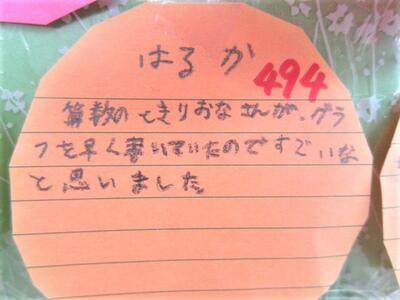 はるか
494
算数のときりおなさんが、グラ
フを早く書いていたのですごいな
と思いました。